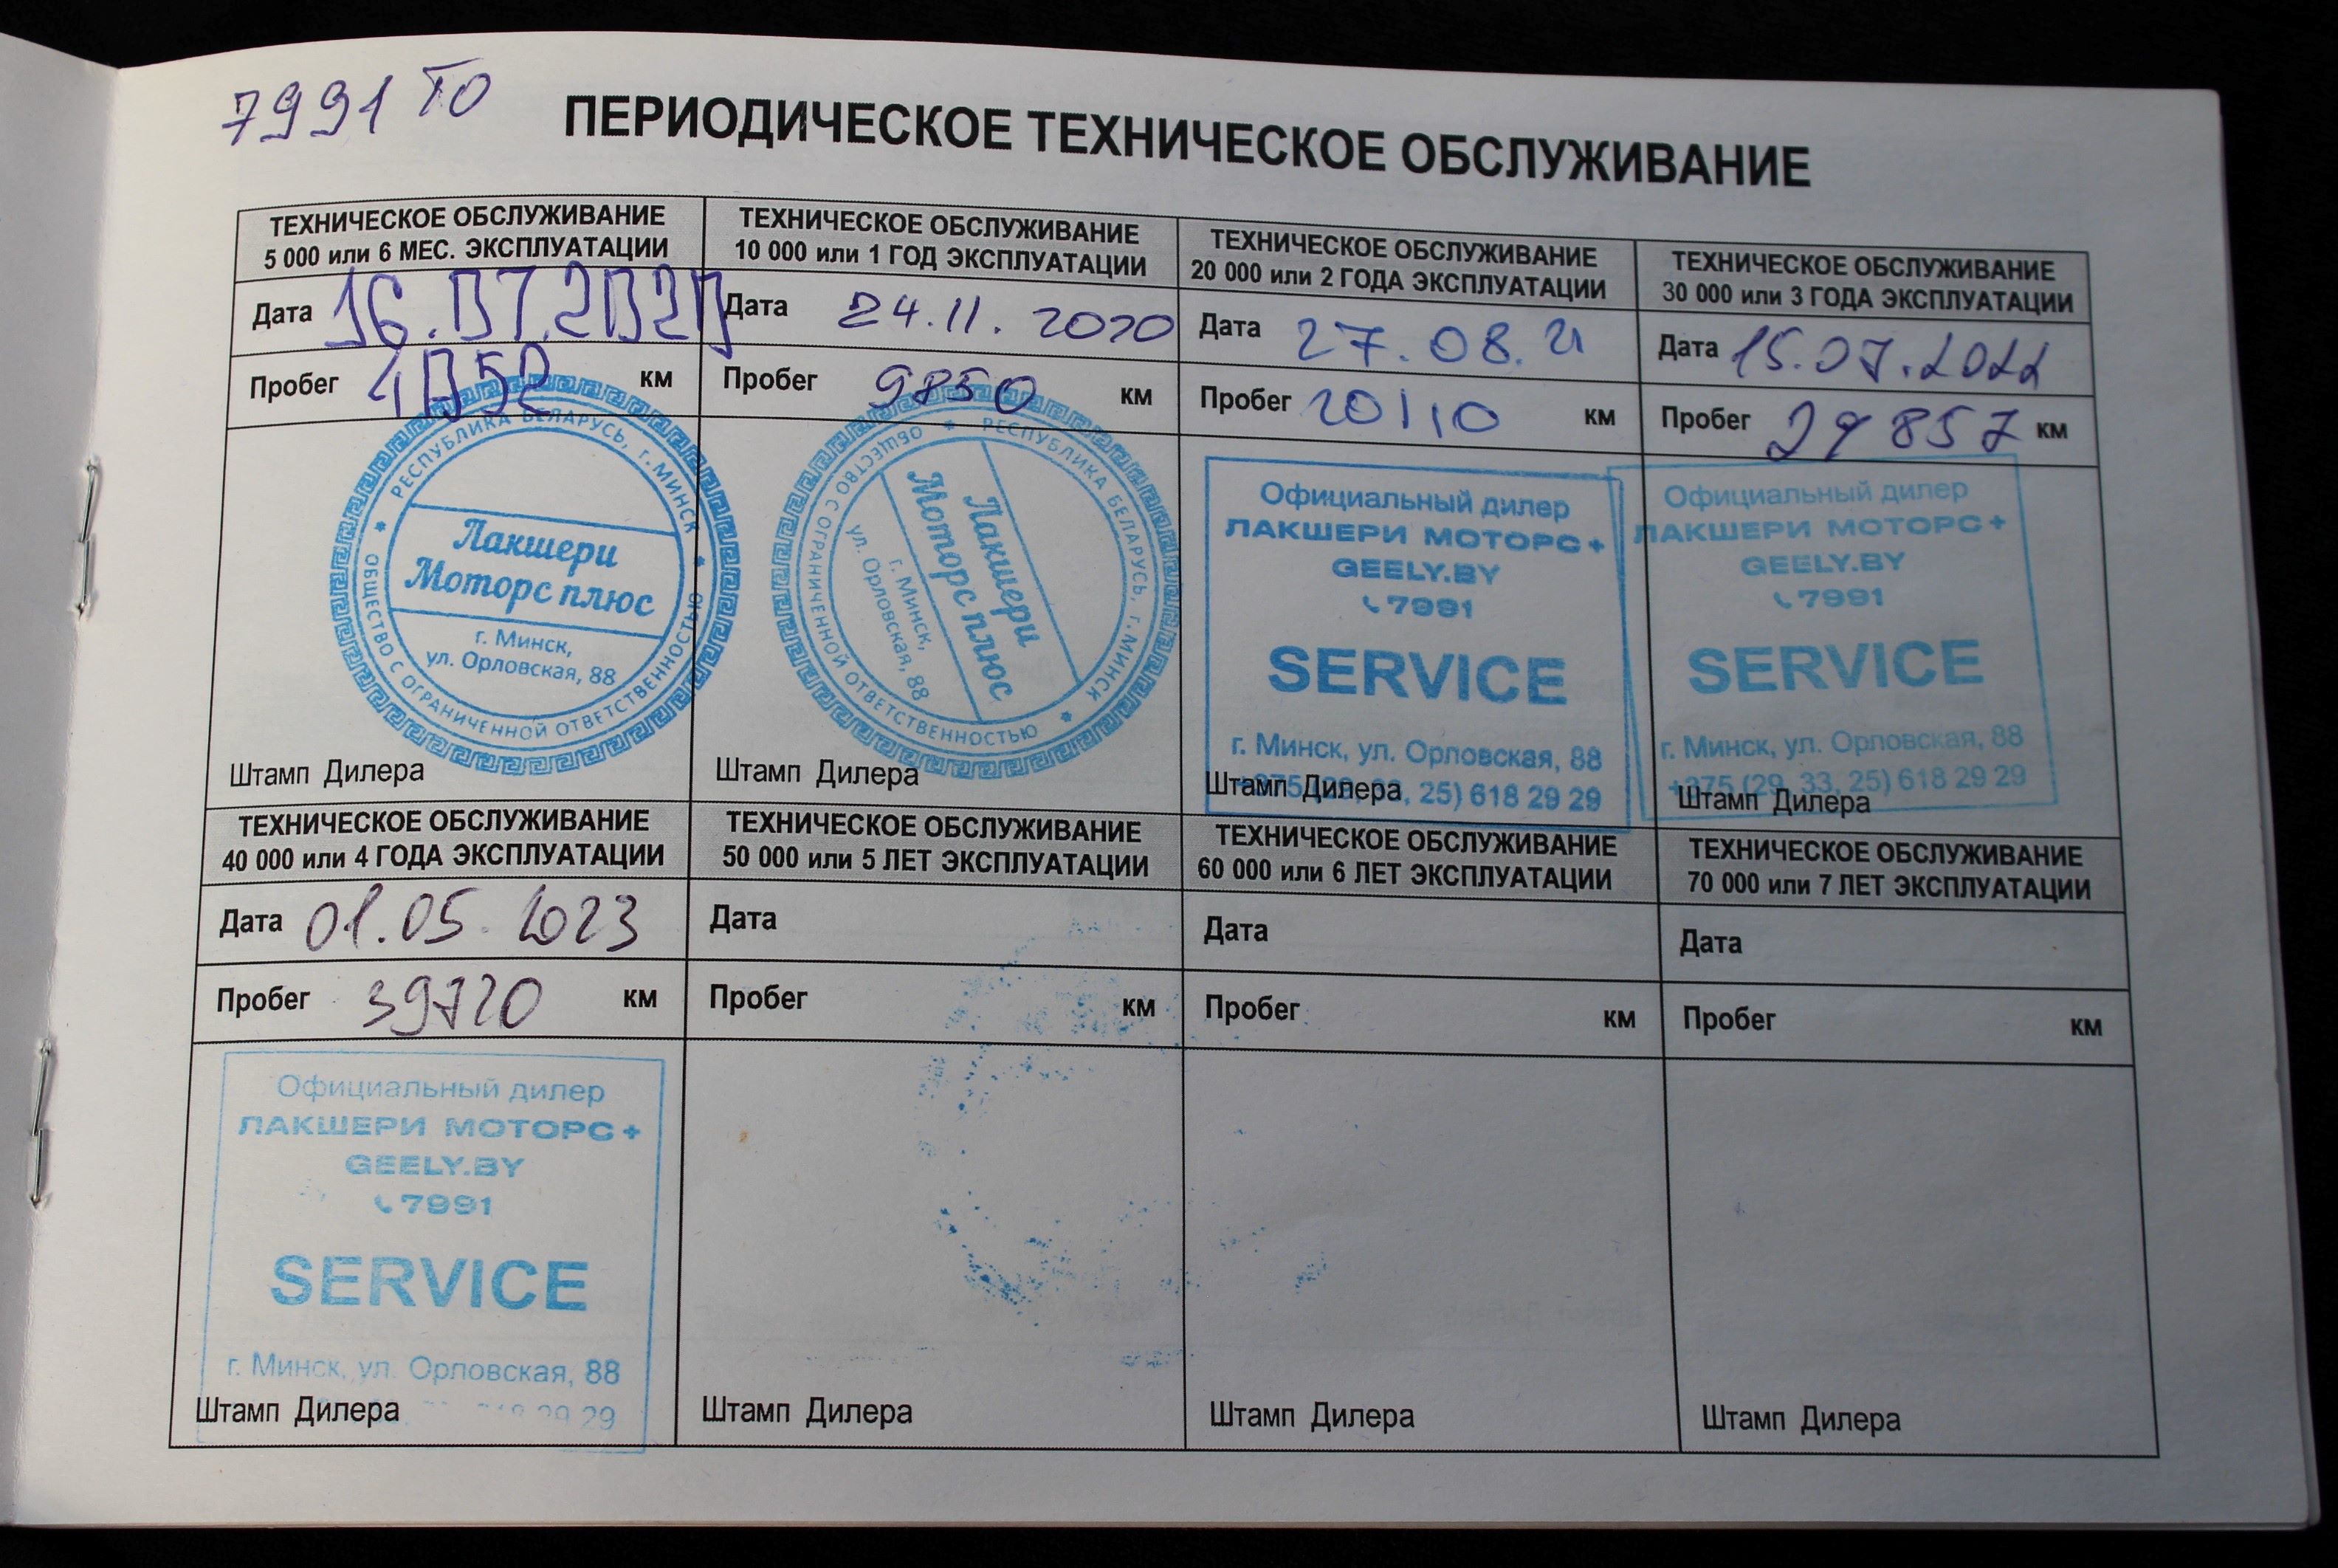 7991 ТО
ПЕРИОДИЧЕСКОЕ ТЕХНИЧЕСКОЕ ОБСЛУЖИВАНИЕ
ТЕХНИЧЕСКОЕ ОБСЛУЖИВАНИЕ
5 000 или 6 МЕС. ЭКСПЛУАТАЦИИ
Дата 16.07.2020
Пробег 4052 км
РЕСПУБЛИКА БЕЛАРУСЬ, г. МИНСК
ОБЩЕСТВО С ОГРАНИЧЕННОЙ ОТВЕТСТВЕННОСТЬЮ
Лакшери
Моторс плюс
г. Минск,
ул. Орловская, 88
Штамп Дилера
ТЕХНИЧЕСКОЕ ОБСЛУЖИВАНИЕ
10 000 или 1 ГОД ЭКСПЛУАТАЦИИ
Дата 24.11.2020
Пробег 9850 км
РЕСПУБЛИКА БЕЛАРУСЬ, г. МИНСК
ОБЩЕСТВО С ОГРАНИЧЕННОЙ ОТВЕТСТВЕННОСТЬЮ
Лакшери
Моторс плюс
г. Минск,
ул. Орловская, 88
Штамп Дилера
ТЕХНИЧЕСКОЕ ОБСЛУЖИВАНИЕ
20 000 или 2 ГОДА ЭКСПЛУАТАЦИИ
Дата 27.08.21
Пробег 20110 км
Официальный дилер
ЛАКШЕРИ МОТОРС+
GEELY.BY
7991
SERVICE
г. Минск, ул. Орловская, 88
+375 (29, 33, 25) 618 29 29
Штамп Дилера
ТЕХНИЧЕСКОЕ ОБСЛУЖИВАНИЕ
30 000 или 3 ГОДА ЭКСПЛУАТАЦИИ
Дата 15.07.2022
Пробег 29857 км
Официальный дилер
ЛАКШЕРИ МОТОРС+
GEELY.BY
7991
SERVICE
г. Минск, ул. Орловская, 88
+375 (29, 33, 25) 618 29 29
Штамп Дилера
ТЕХНИЧЕСКОЕ ОБСЛУЖИВАНИЕ
40 000 или 4 ГОДА ЭКСПЛУАТАЦИИ
Дата 01.05.2023
Пробег 39720 км
Официальный дилер
ЛАКШЕРИ МОТОРС+
GEELY.BY
7991
SERVICE
г. Минск, ул. Орловская, 88
29 29
Штамп Дилера
ТЕХНИЧЕСКОЕ ОБСЛУЖИВАНИЕ
50 000 или 5 ЛЕТ ЭКСПЛУАТАЦИИ
Дата
Пробег км
Штамп Дилера
ТЕХНИЧЕСКОЕ ОБСЛУЖИВАНИЕ
60 000 или 6 ЛЕТ ЭКСПЛУАТАЦИИ
Дата
Пробег км
Штамп Дилера
ТЕХНИЧЕСКОЕ ОБСЛУЖИВАНИЕ
70 000 или 7 ЛЕТ ЭКСПЛУАТАЦИИ
Дата
Пробег км
Штамп Дилера